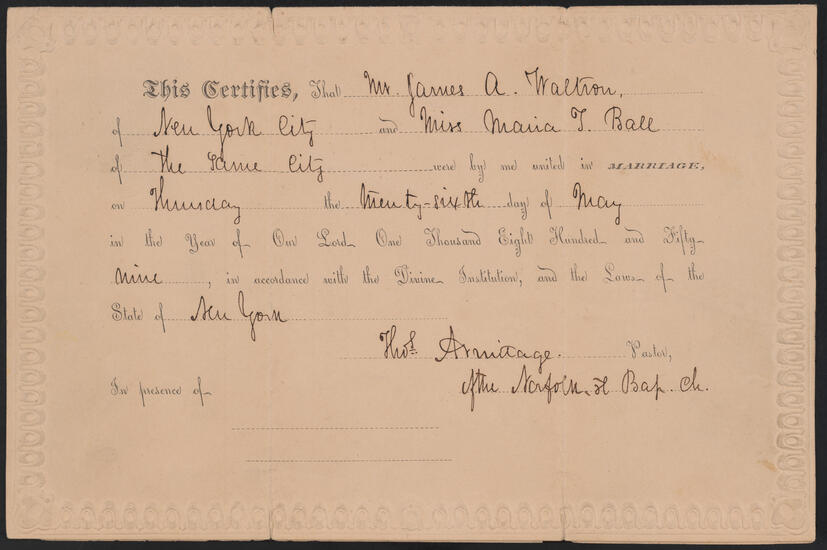 This Certifies, That Mr. James A. Waltron,
of New York City and Miss Maria T. Ball
of The Same City were by me united in MARRIAGE,
on Thursday the Twenty-sixth day of May
in the Year of Our Lord One Thousand Eight Hundred and Fifty-
nine, in accordance with the Divine Institution, and the Laws of the
State of New York
Thos. Armitage. Pastor,
In presence of of the Norfolk St Bap. Ch.